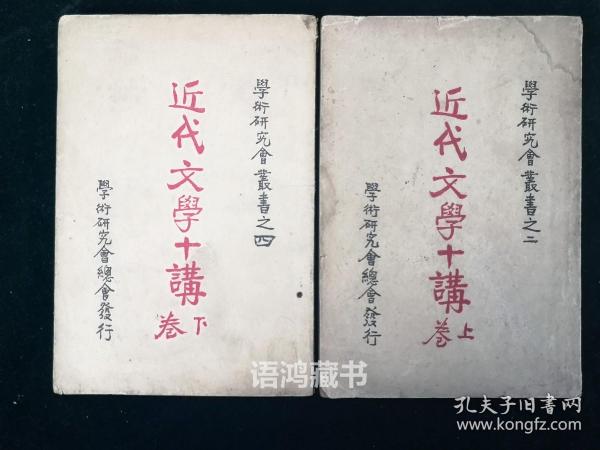 學術研究會叢書之二
近代文學十講
上卷
學術研究會總會發行
學術研究會叢書之四
近代文學十講
下卷
學術研究會總會發行
语鸿藏书
孔夫子旧书网
www.kongfz.com